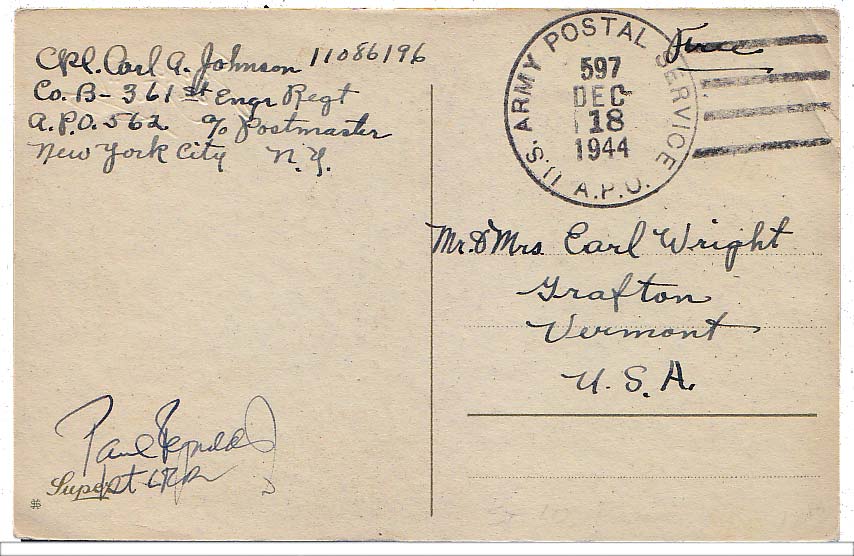 Cpl. Carl A. Johnson 11086196
Co. B - 361st Engr Regt
A.P.O. 562 c/o Postmaster
New York City N.Y.
U.S. ARMY POSTAL SERVICE
A.P.O.
597
DEC
18
1944
Free
Mr. & Mrs Earl Wright
Grafton
Vermont
U. S. A.
Paul Reynolds
1st Lt